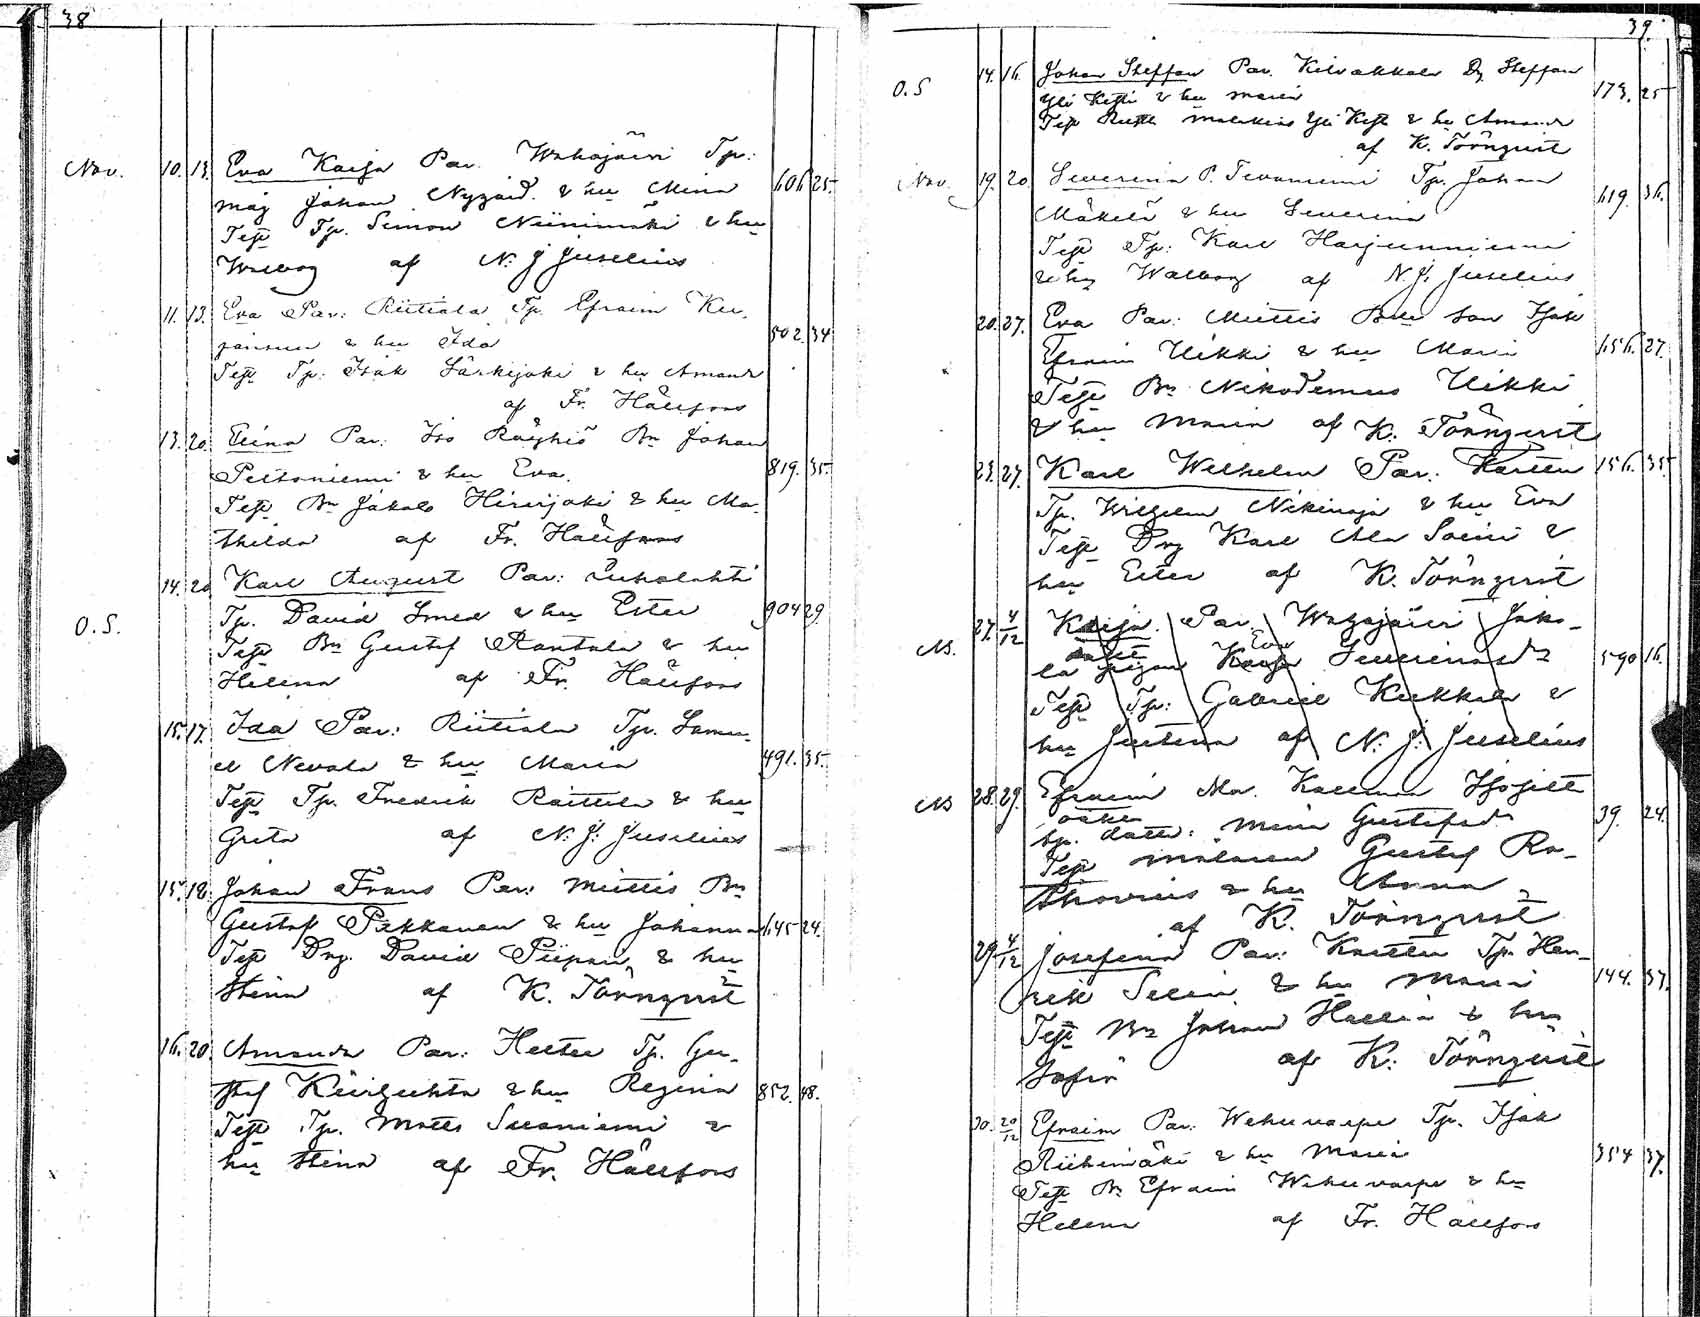 38
Nov. 10. 13. Eva Kaisa Par. Wahojärvi Tp:
måg Johan Nygård & hu Mina 606 25
Test Tp. Simon Niinimäki & hu
Walborg af N. J. Juselius
11. 13. Eva Par: Riitiala Tp. Efraim Kui-
& hu Ida 502. 34
Test Tp: Isak Särkijoki & hu Amanda
af Fr. Hällfors
13. 20. Elina Par: Iso Röyhiö Bn Johan
Peltoniemi & hu Eva. 819. 35.
Test Bn Jakob Hirvijoki & hu Ma-
thilda af Fr. Hällfors
14. 20 Karl August Par:
O. S. Tp. David Smed & hu Ester 904 29
Test Bn Gustaf Rantala & hu
Helena af Fr. Hällfors
15. 17. Ida Par: Riitiala Tp. Samu-
el Nevala & hu Maria 491. 35.
Test Tp. Fredrik Raittila & hu
Greta af N. J. Juselius
15. 18. Johan Frans Par: Miettis Bn
Gustaf Pakkanen & hu Johanna 645 24.
Test Drg. David Piipari & hu
Stina af K. Törnqvist
16. 20. Amanda Par: Heltee Tp. Gu-
staf & hu Regina 852. 48.
Test Tp. Matts Suoniemi &
hu Stina af Fr. Hällfors
39.
O. S 14. 16. Johan Steffan Par. Kilvakkala Dg Steffan 173. 25
Yli Kesti & hu Maria
Test Yli Kesti & hu Amanda
af K. Törnqvist
Nov. 19. 20 Severina P. Tevaniemi Tp. Johan
Mäkelä & hu Severina 619. 36.
Test Tp: Karl Harjunniemi
& hu Walborg af N. J. Juselius
20. 27. Eva Par: Miettis Bn son Isak
Efraim Uikki & hu Maria 656. 27.
Test Bn Nikodemus Uikki
& hu Maria af K. Törnqvist
23. 27. Karl Wilhelm Par: Karttu 156. 35
Tp. Wilhelm & hu Eva
Test Drg Karl Ala Soini &
hu Ester af K. Törnqvist
27. 4/12 Kaisa. Par. Wahojärvi Jako-
Ns. la pigan Kaisa Eva Severinasdr 590 16.
Test Tp: Gabriel Kukkola &
hu Justina af N. J. Juselius
Ns 28. 29. Efraim
oäkta
sp. dotter: Mina Gustafsdr 39. 24.
Test målaren Gustaf
& hu Anna
af K. Törnqvist
29. 4/12 Josefina Par: Kartto Tp. Hen-
rik Selin & hu Maria 144. 37.
Test Bn Johan Hellin & hu
Sofia af K. Törnqvist
30. 20/12 Efraim Par: Wehuvarpe Tp. Isak
Riihimäki & hu Maria 354 37.
Test Bn Efraim Wehuvarpe & hu
Helena af Fr. Hällfors